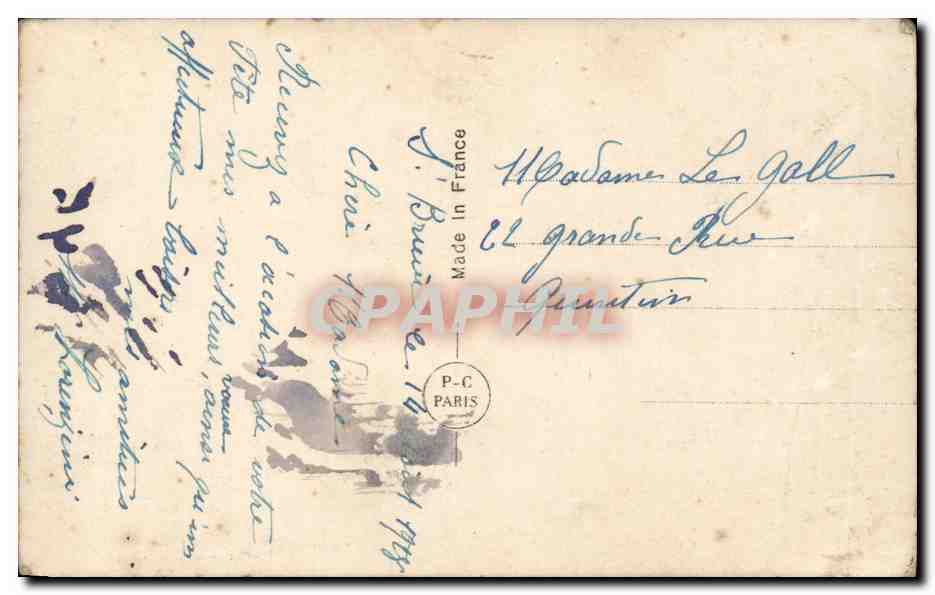 St Brieuc le 14 août
Chère Madame
Recevez à l'occasion de votre
Fête mes meilleurs vœux, ainsi qu'un
affectueux baisers
mes amitiés
Lorenzini
Made In France
P-C
PARIS
Madame Le Gall
22 grande Rue
Quintin
CPAPHIL